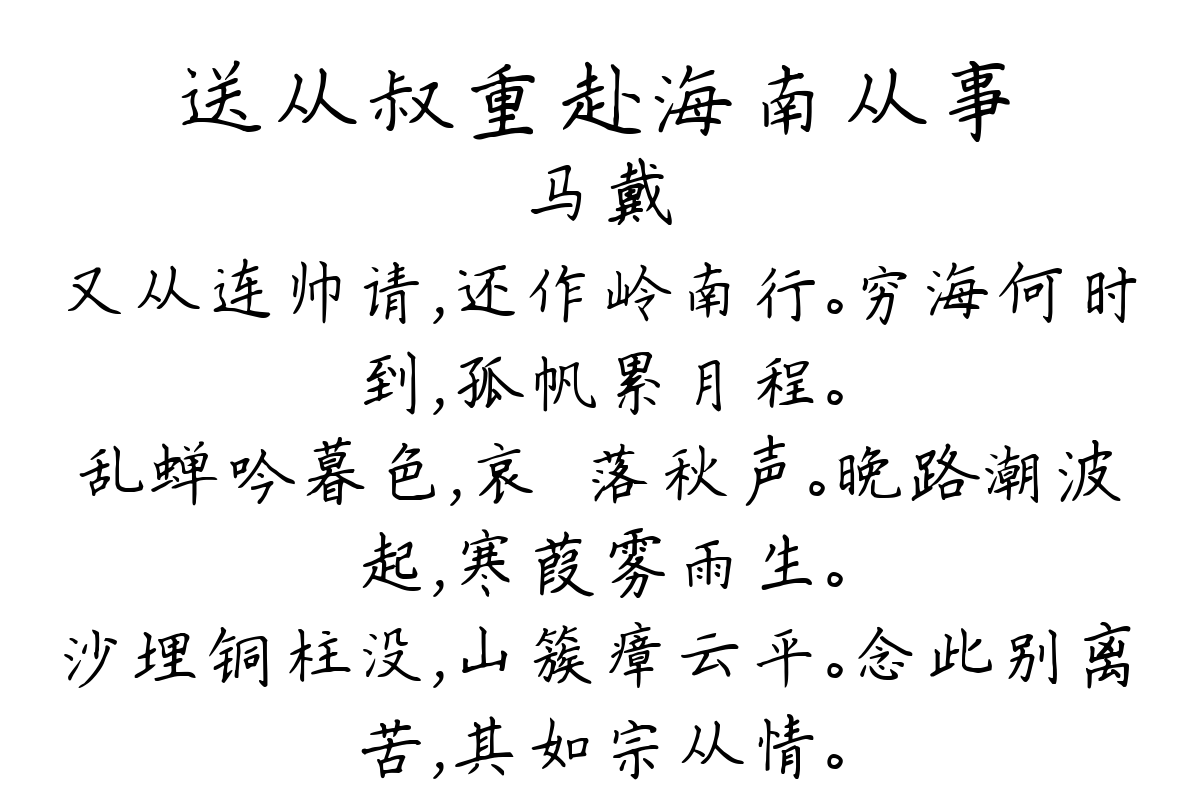 送从叔重赴海南从事
马戴
又从连帅请,还作岭南行。穷海何时
到,孤帆累月程。
乱蝉吟暮色,哀 落秋声。晚路潮波
起,寒葭雾雨生。
沙埋铜柱没,山簇瘴云平。念此别离
苦,其如宗从情。